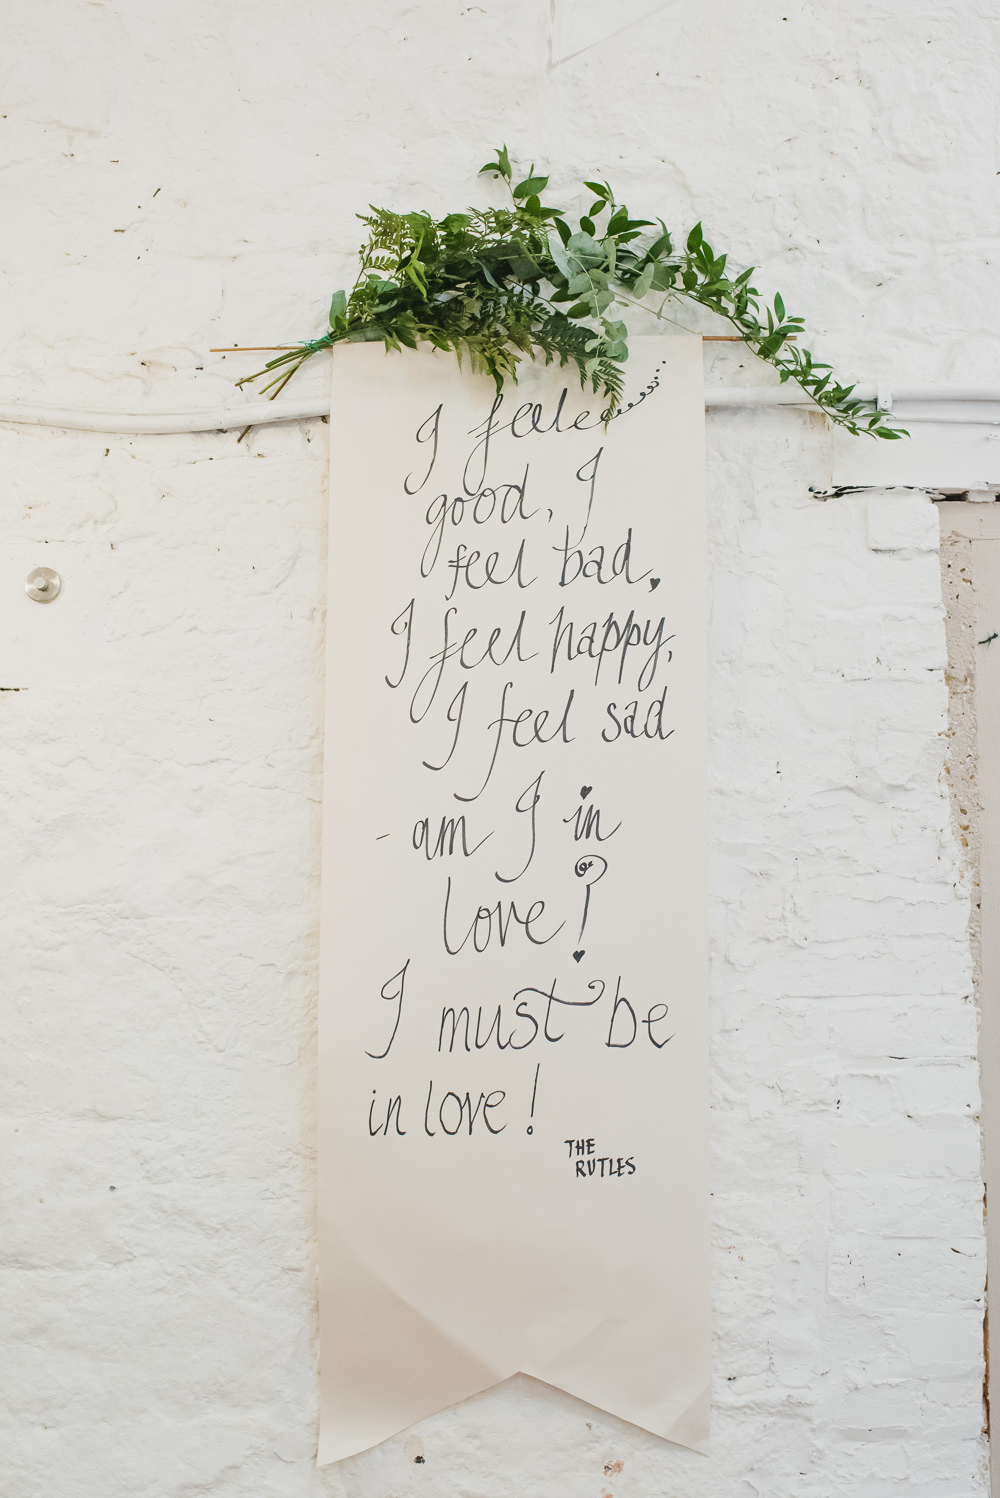 I feel
good, I
feel bad,
I feel happy,
I feel sad
- am I in
love?
I must be
in love!
THE
RUTLES